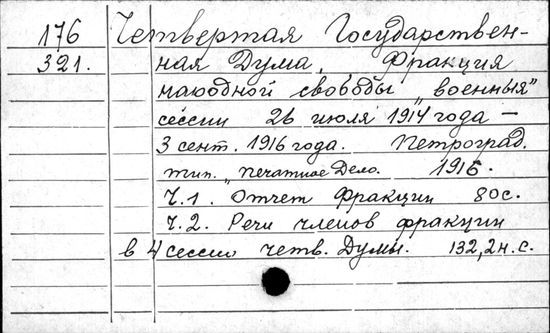 176 Четвертая Государствен-
321. ная Дума, Фракция
народной свободы „военныя"
сессии 26 июля 1914 года —
3 сент. 1916 года. Петроград.
тип. „Печатное Дело. 1916.
Ч.1. Отчет Фракции 80с.
Ч.2. Речи членов фракции
в 4 сессию четв. Думы. 132,2н.с.